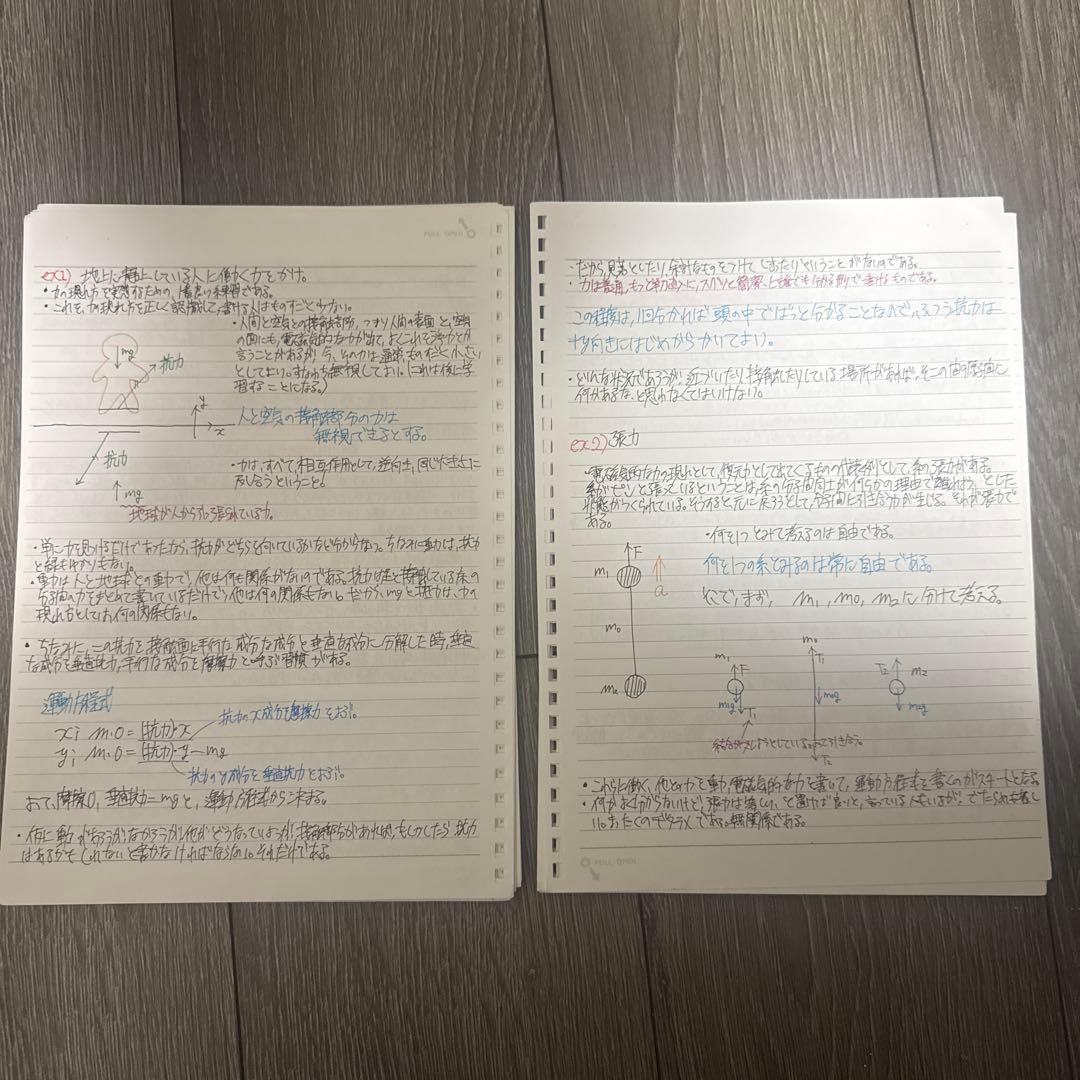 PULL OPEN
ex1) 地上に静止している人に働く力をかけ。
・力の現れ方を実感するための 価値ある練習である。
・これを、力の現れ方を正しく認識して、書ける人はものすごく少ない。
・人間と空気との接触部分、つまり人間の表面と、空気
の間にも、電磁気的な力が出て、よくこれを浮力とか
言うことがあるが、今、その力は通常、ものすごく小さい
としてよい。すなわち無視してよい。(これは後に学
習することになる。)
mg
抗力
y
x
人と空気の接触部分の力は
無視できるとする。
抗力
・力は、すべて、相互作用として、逆向き、同じ大きさに
及ぼし合うということ。
mg
地球が人から引っ張られている力。
・単に力を見つけるだけであったら、抗力がどちらを向いているかなど分からない。ちなみに重力は、抗力
と縁もゆかりもない。
・重力は人と地球との重力で、他は何も関係がないのである。抗力は足と接触している床の
分子間の力をまとめて書いているだけで、他は何の関係もない。だから、mgと抗力は、力の
現れ方としてお互い何の関係もない。
・ちなみに、この抗力を接触面と平行な成分と垂直な成分に分解した時、垂直
な成分を垂直抗力、平行な成分を摩擦力と呼ぶ習慣がある。
運動方程式
x; m・0 = (抗力)x
抗力のx成分を摩擦力とよぶ。
y; m・0 = (抗力)y - mg
抗力のy成分を垂直抗力とよぶ。
よって、摩擦0、垂直抗力=mgと、運動方程式から決まる。
・仮に動こうがなかろうが他がどうなっていようが、接触部分があれば、もしかしたら抗力
はあるかもしれないと書かなければならない。それだけである。
・だから、見落としたり、余計なものをつけてしまったりということがないのである。
この種は、1回分かれば頭の中でぱっと分かることなので、ふつう抗力は
上向きにはじめからかいてよい。
・どんな状況であろうが、近づいたり接触したりしている場所があれば、そこの間の分子間に
何かあるな、と思わなくてはいけない。
ex2) 張力
・電磁気的な力の現れとして、復元力として出てくるものの代表例として、糸の張力がある。
糸がピンと張っているということは、糸の分子間同士が何らかの理由で離れようとした
状態がつくられている。そうすると元に戻ろうとして、分子間に引き合う力が生じる。それが張力で
ある。
・何を1つとみて考えるのは自由である。
何を1つの系とみるのは常に自由である。
そこで、まず、m₁, m₀, m₂に分けて考える。
F
m₁
a
m₀
m₂
m₁
F
m₁g
T₁
m₀
T₁
m₀g
T₂
T₂
m₂
m₂g
・これらに働く、他との力を重力、電磁気的な力を書いて、運動方程式を書くのがスタートとなる。
・何かよく分からないけど、張力は等しい、と置けば良いと、言っている人もいるが、でたらめも著し
い。まったくのデタラメである。無関係である。
PULL OPEN